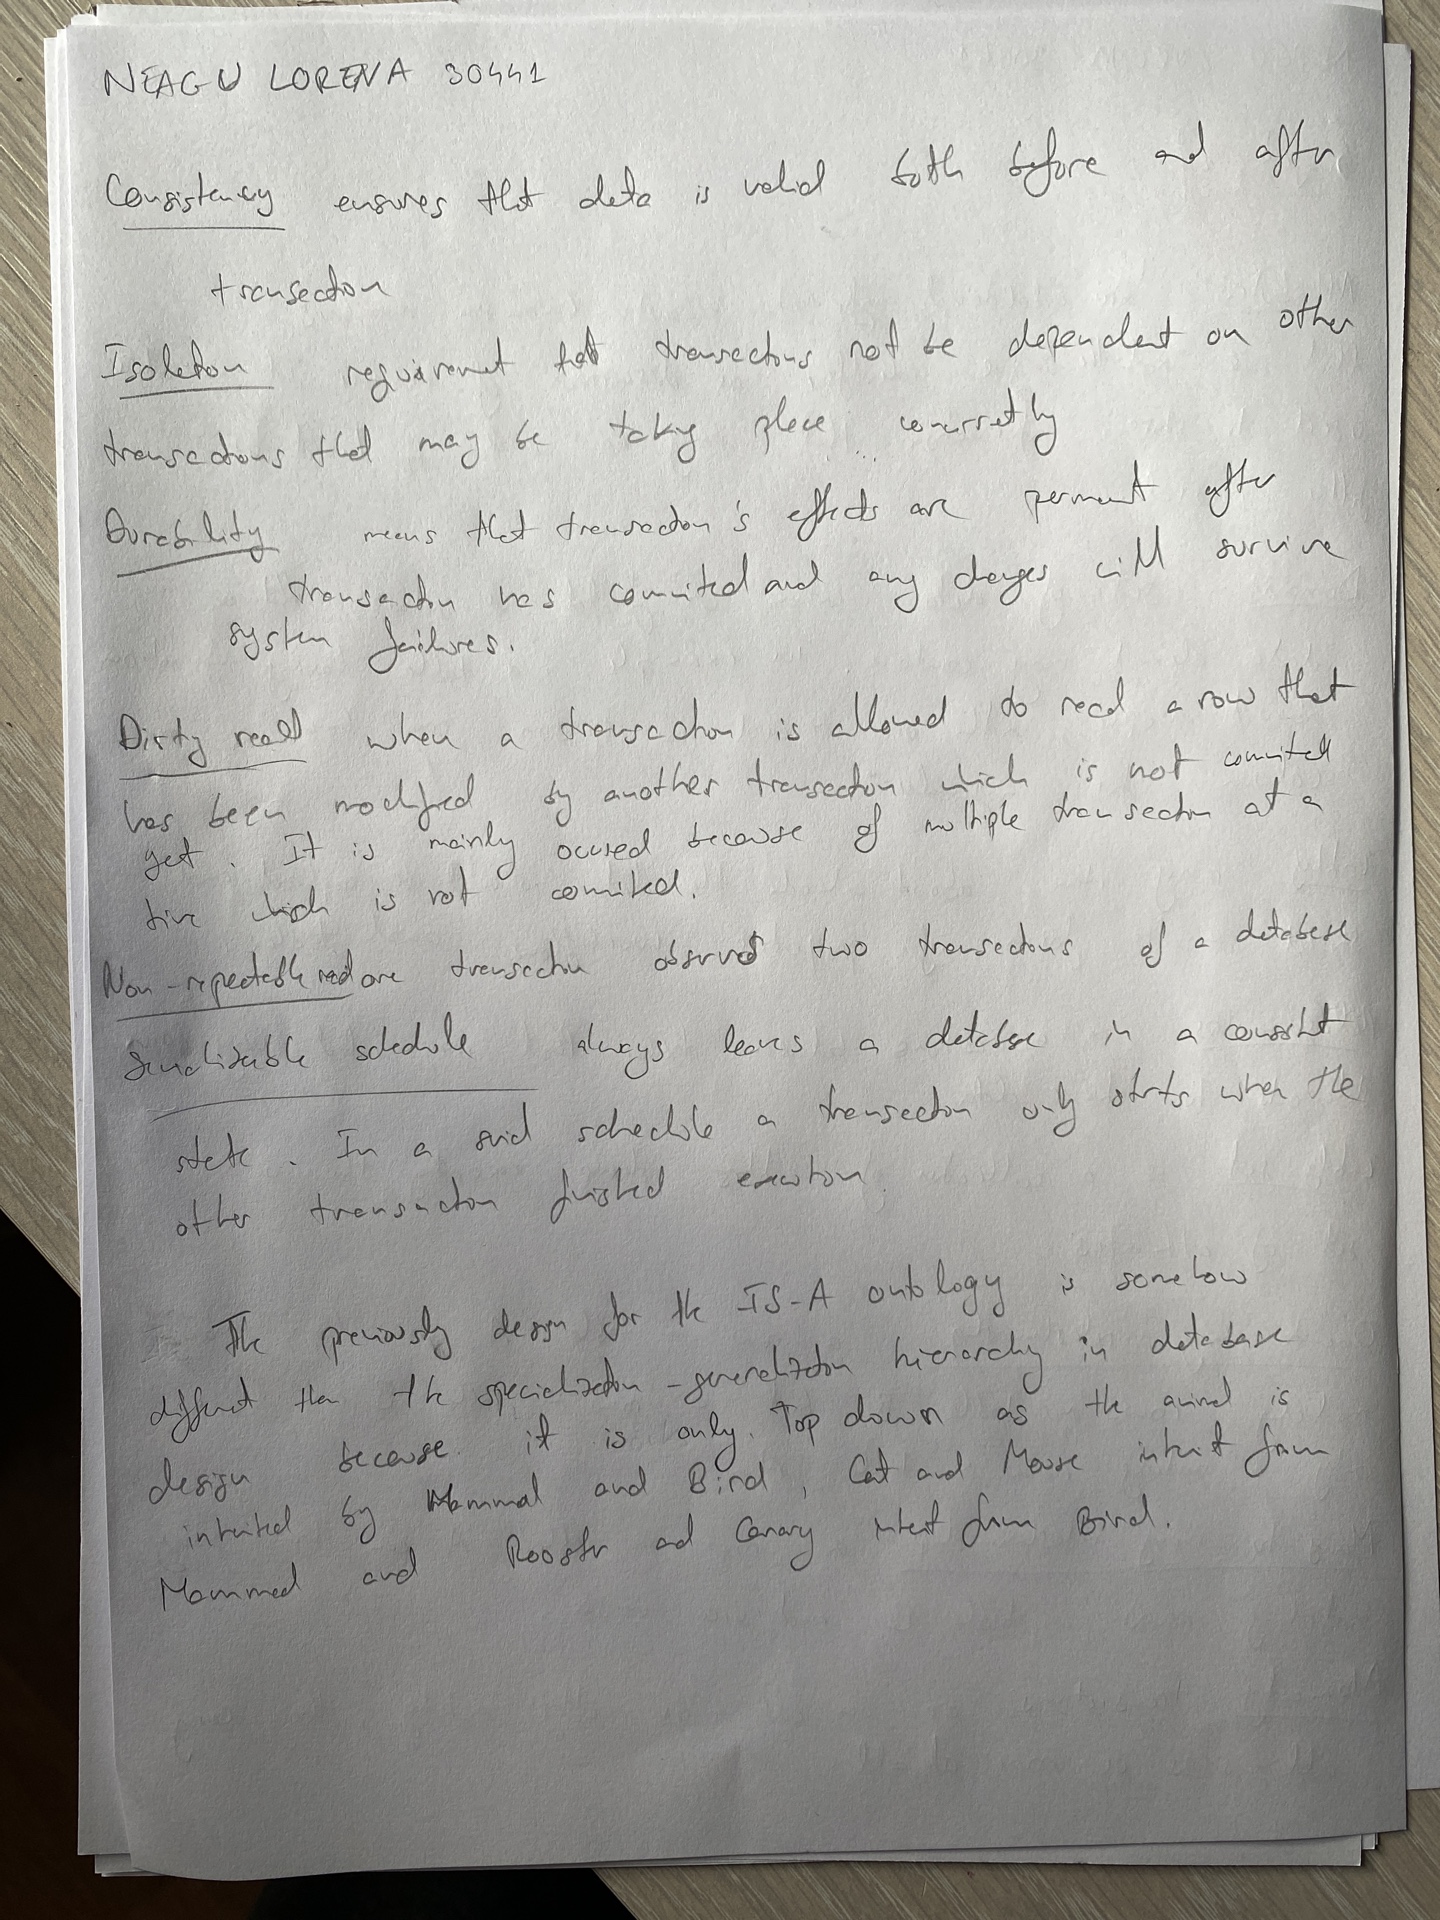 NEAGU LORENA 30441
Consistency ensures that data is valid both before and after
transaction
Isolation requirement that transactions not be dependent on other
transactions that may be taking place concurretly
Durability means that transaction's effects are permant after
transaction has commited and any changes will survive
system failures.
Dirty read when a transaction is allowed to read a row that
has been modified by another transaction which is not commited
yet. It is mainly occured because of multiple transaction at a
time which is not commited.
Non-repeatable read one transaction observes two transactions of a database
Serializable schedule always leaves a database in a consistent
state. In a serial schedule a transaction only starts when the
other transaction finished execution.
The previously design for the IS-A ontology is somehow
different than the specialization-generalization hierarchy in database
design because it is only Top down as the animal is
inherited by Mammal and Bird, Cat and Mouse inherit from
Mammal and Rooster and Canary inherit from Bird.